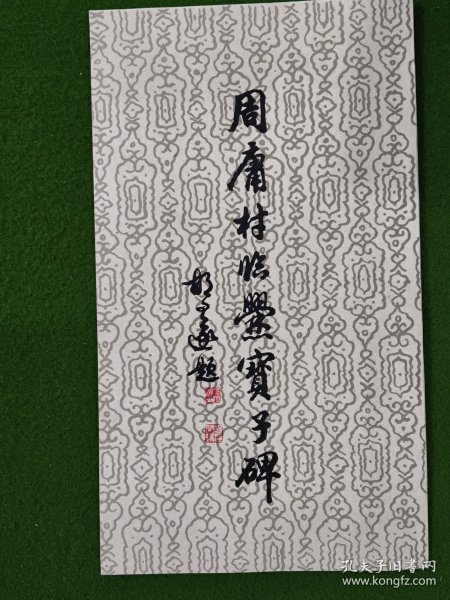 周庸村临爨寶子碑
题
孔夫子旧书网
www.kongfz.com